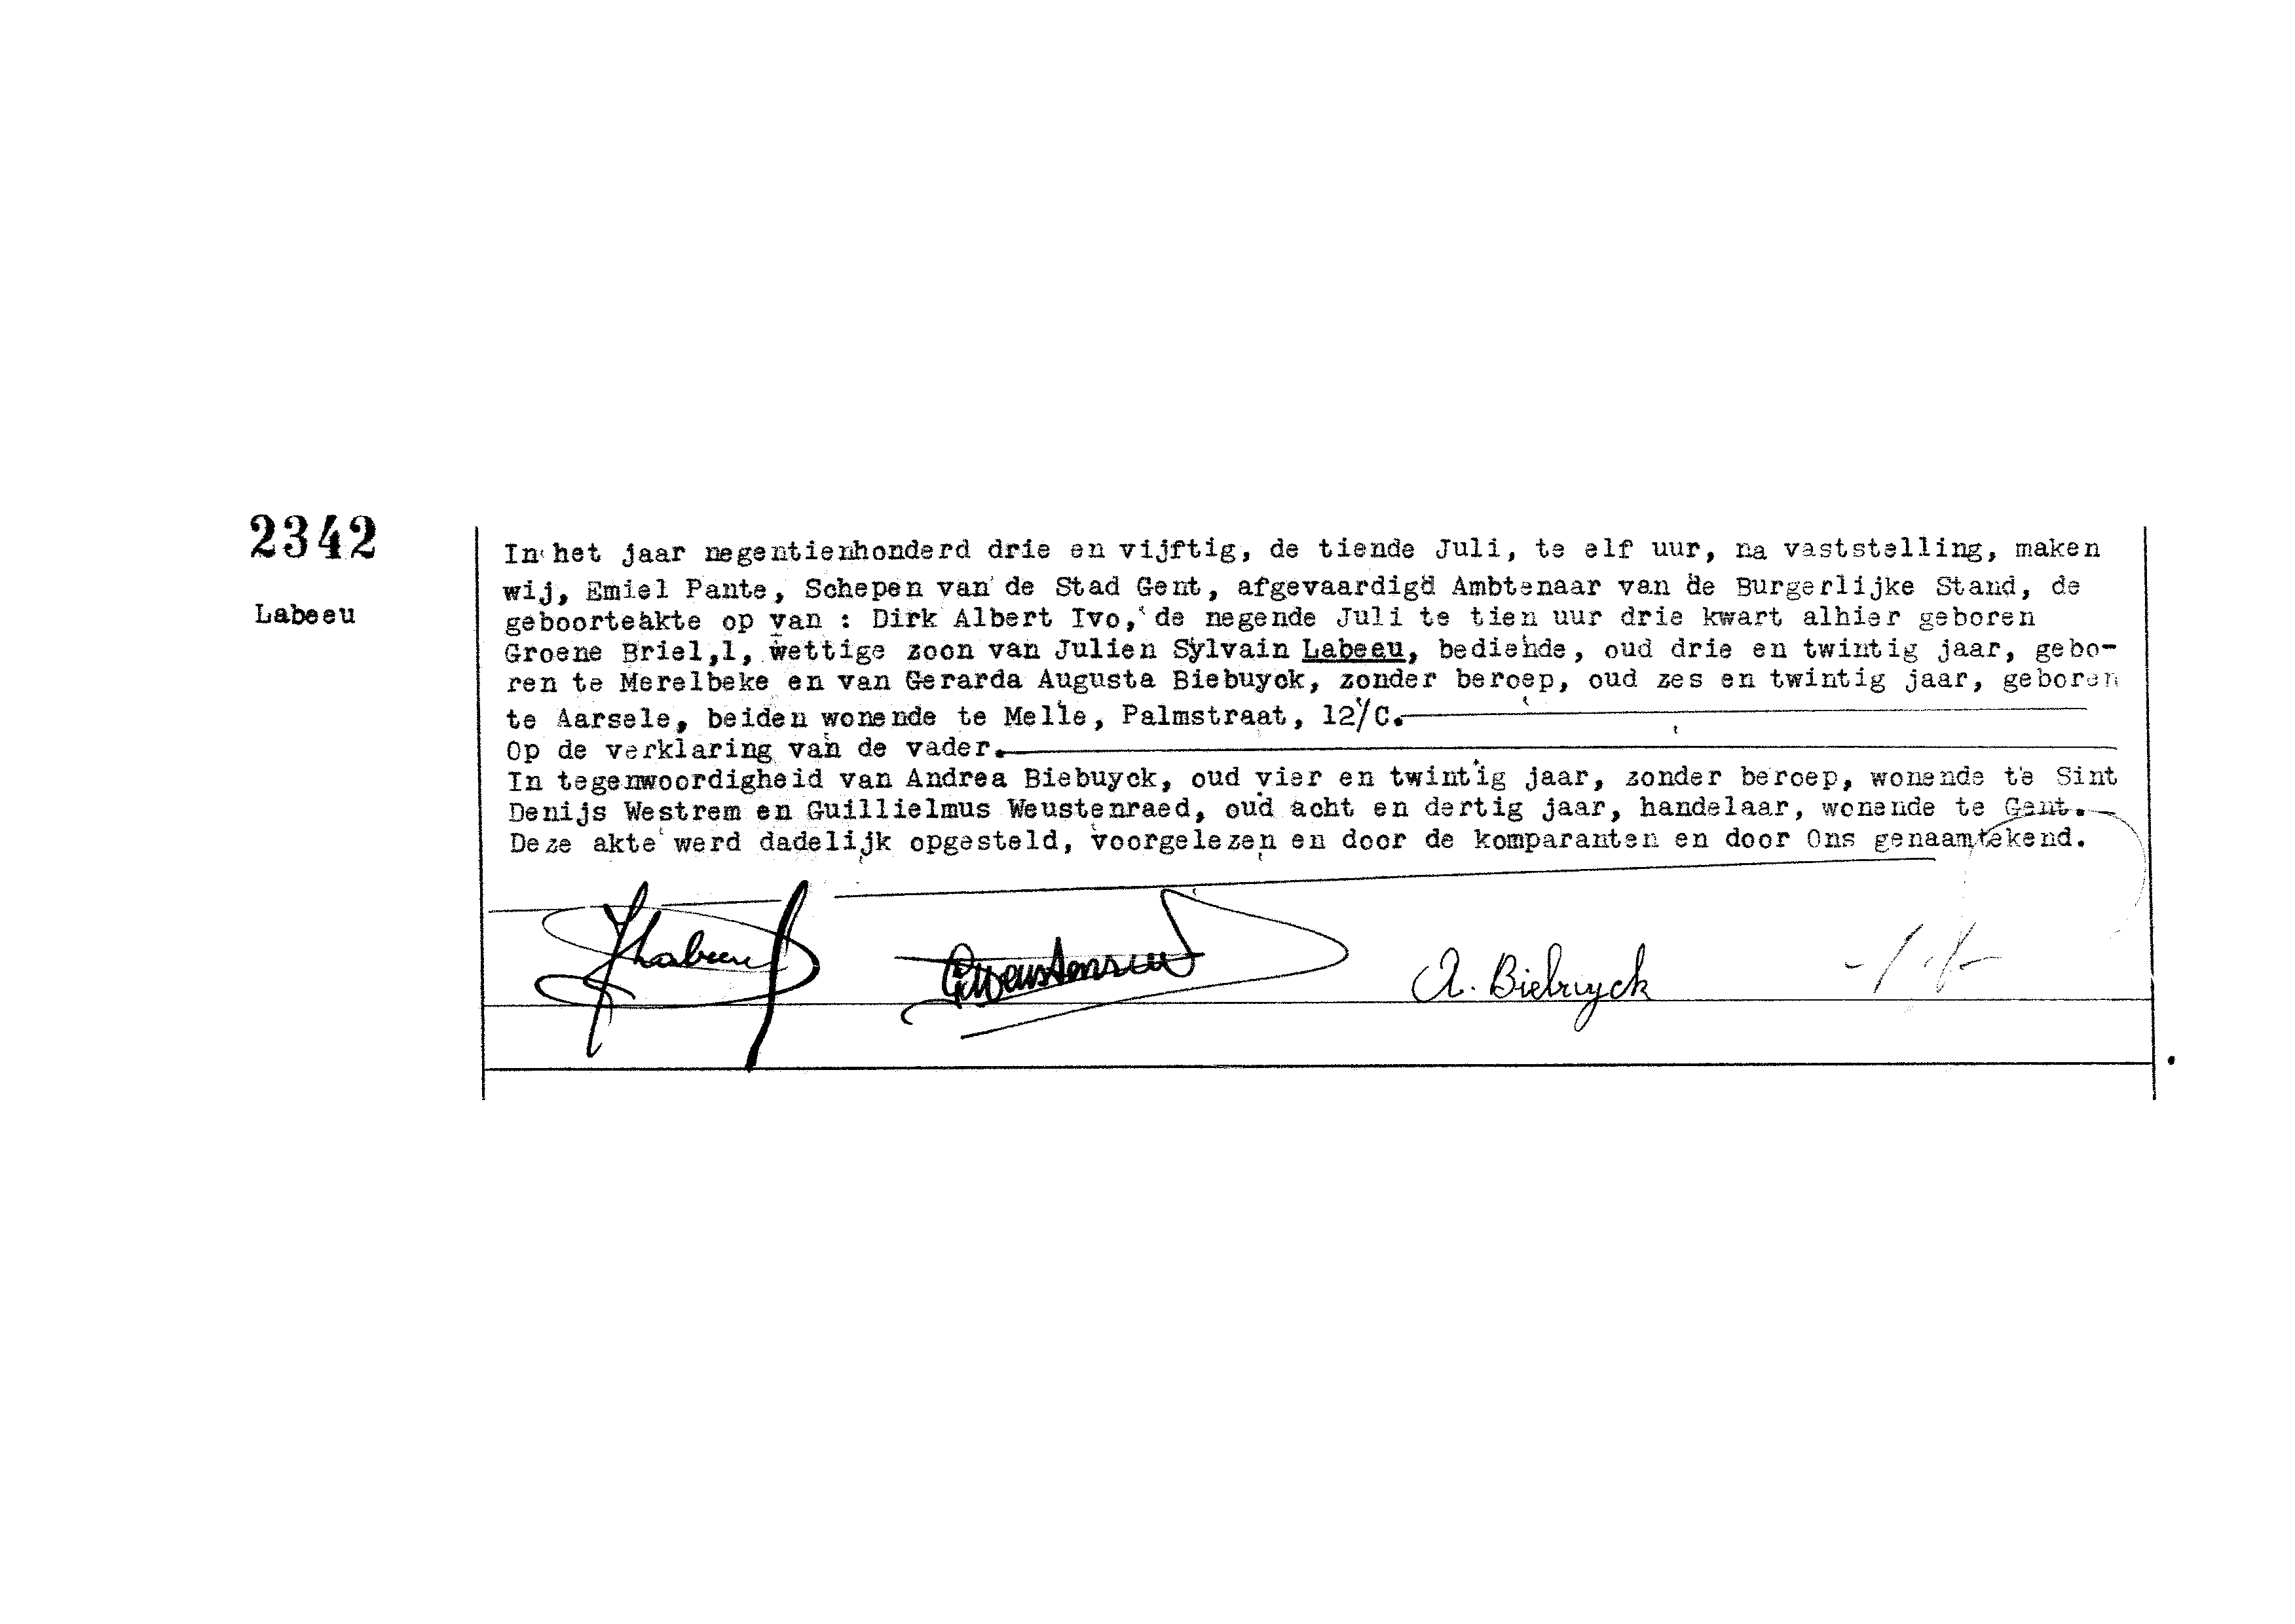 2342
Labeeu
In het jaar negentienhonderd drie en vijftig, de tiende Juli, te elf uur, na vaststelling, maken
wij, Emiel Pante, Schepen van de Stad Gent, afgevaardigd Ambtenaar van de Burgerlijke Stand, de
geboorteakte op van : Dirk Albert Ivo, de negende Juli te tien uur drie kwart alhier geboren
Groene Briel,1, wettige zoon van Julien Sylvain Labeeu, bediende, oud drie en twintig jaar, gebo-
ren te Merelbeke en van Gerarda Augusta Biebuyck, zonder beroep, oud zes en twintig jaar, geboren
te Aarsele, beiden wonende te Melle, Palmstraat, 12/C.
Op de verklaring van de vader.
In tegenwoordigheid van Andrea Biebuyck, oud vier en twintig jaar, zonder beroep, wonende te Sint
Denijs Westrem en Guillielmus Weustenraed, oud acht en dertig jaar, handelaar, wonende te Gent.
Deze akte werd dadelijk opgesteld, voorgelezen en door de komparanten en door Ons genaamtekend.
A. Biebuyck